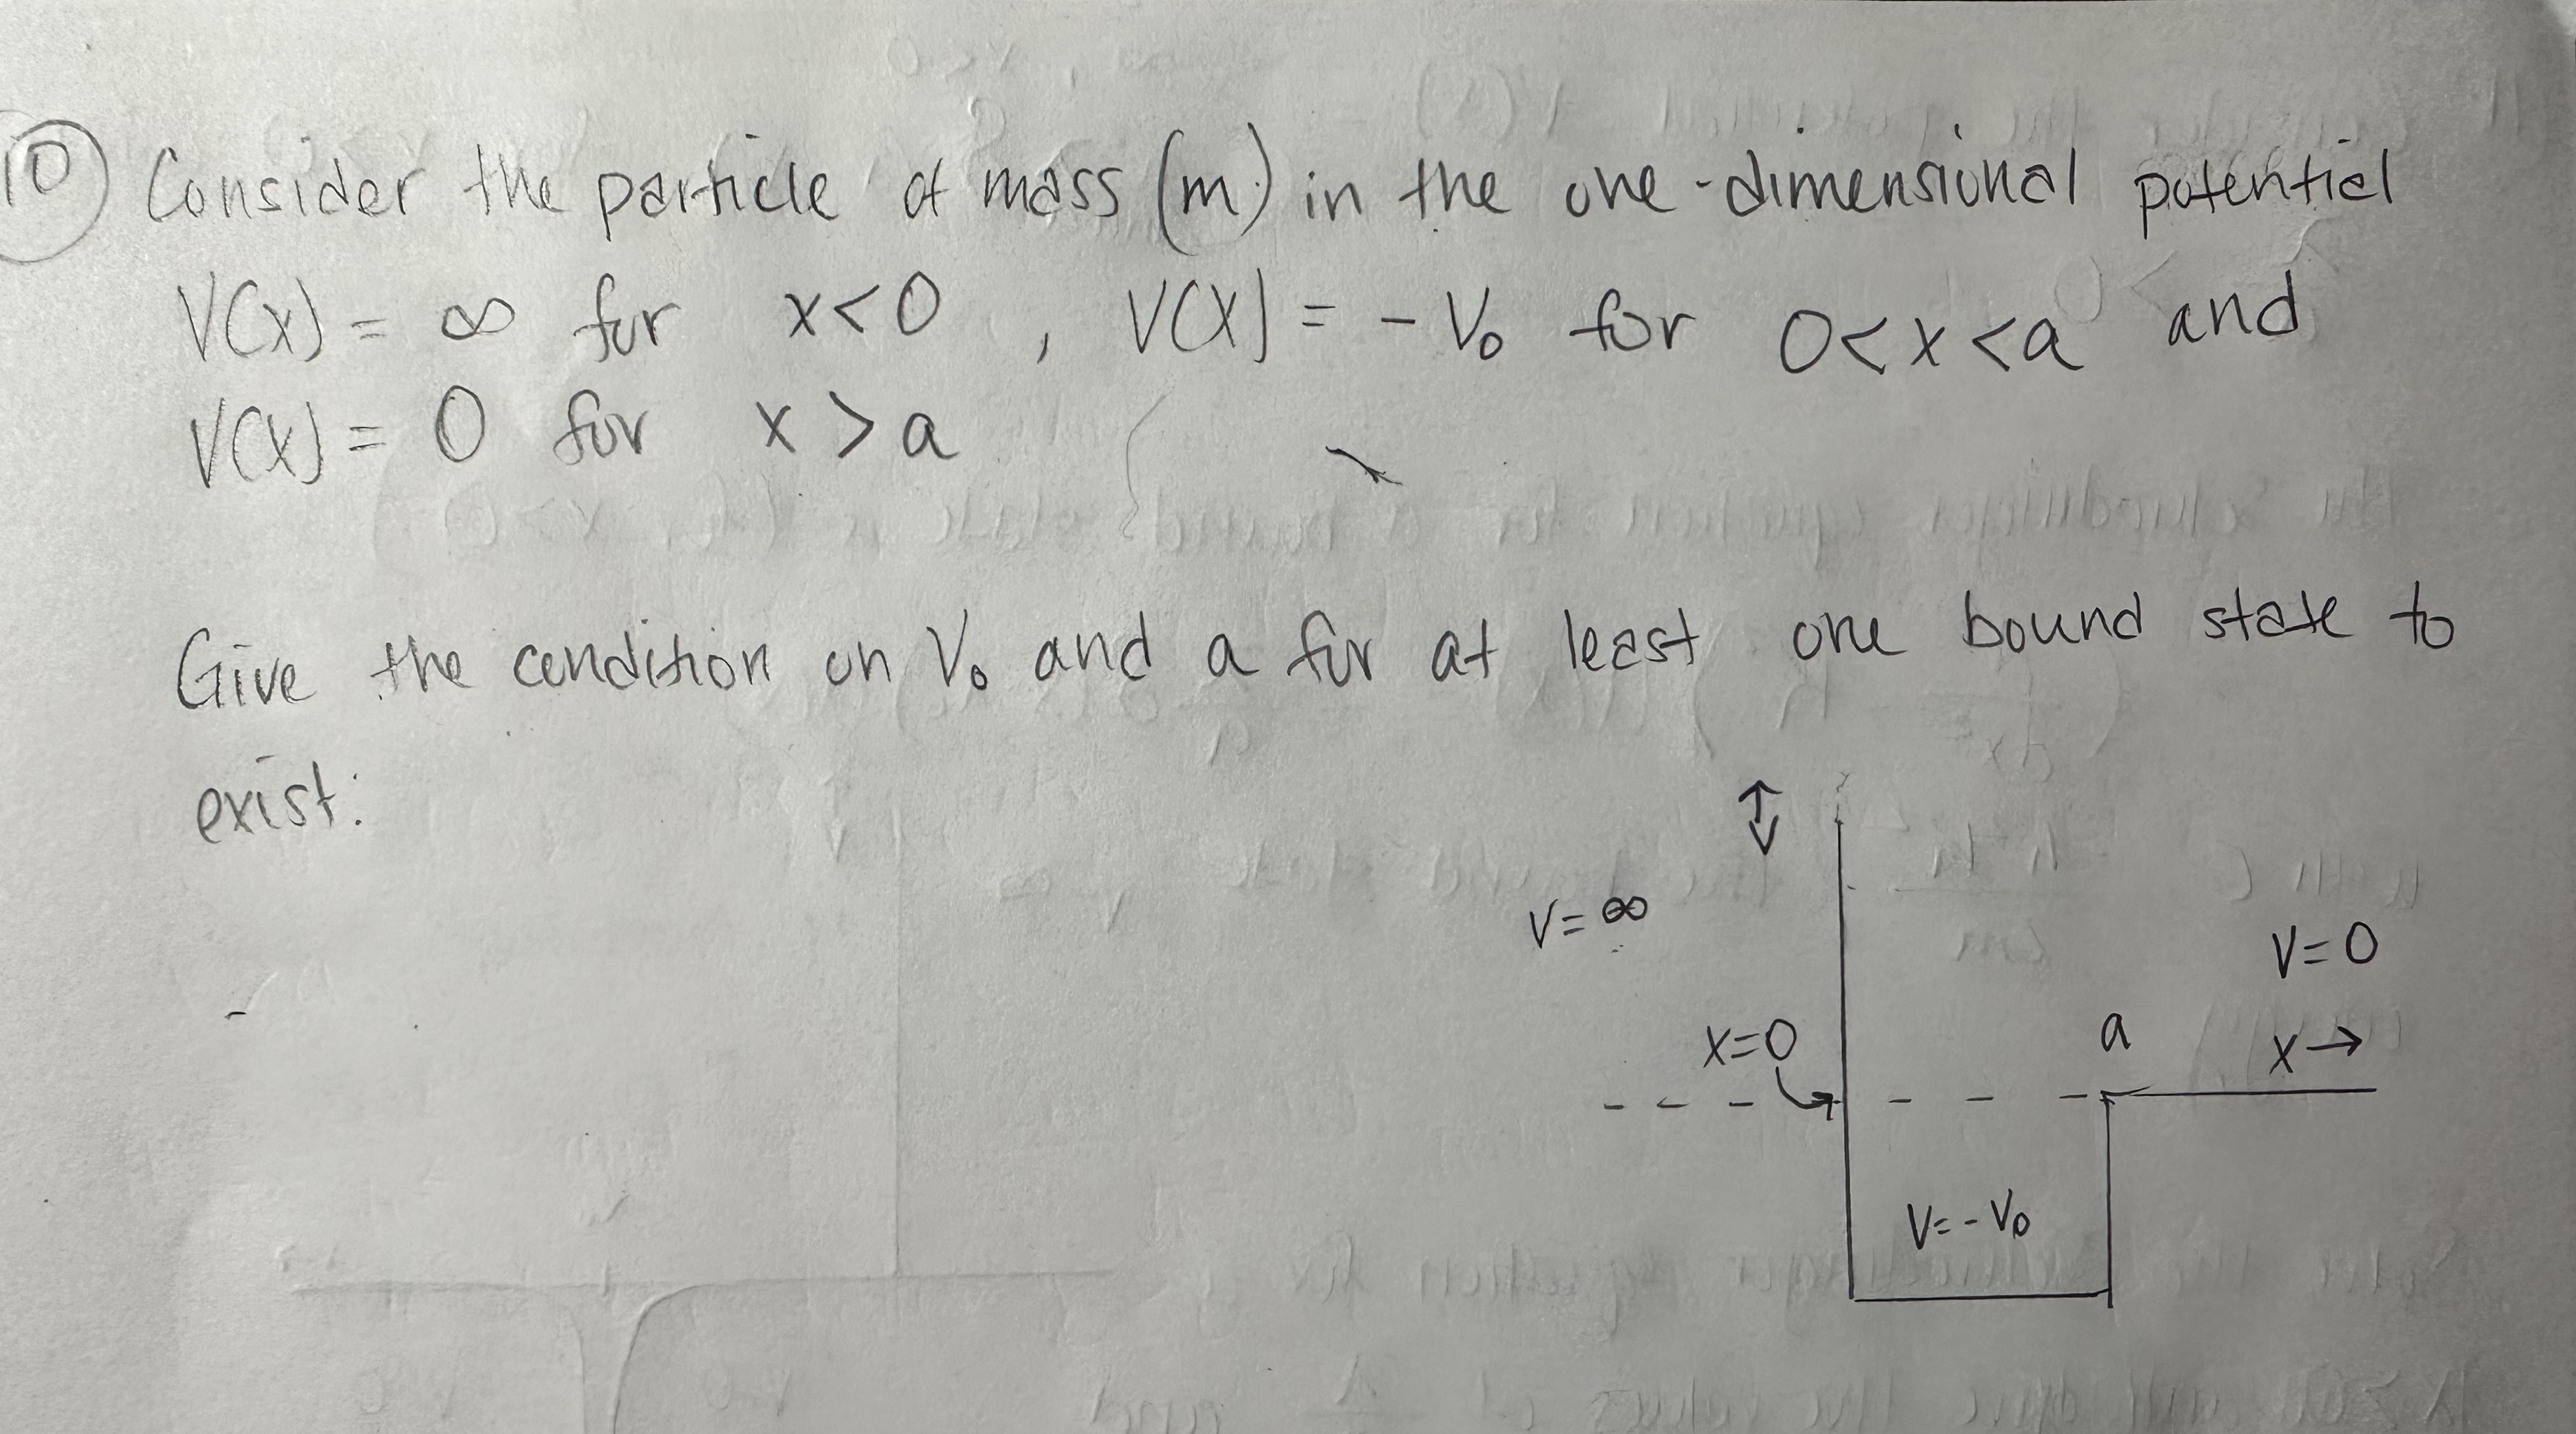 10 Consider the particle of mass (m) in the one-dimensional potential
V(x) = ∞ for x<0 , V(x) = - V₀ for 0<x<a and
V(x) = 0 for x > a
Give the condition on V₀ and a for at least one bound state to
exist:
V=∞
V=0
x=0
a
x→
V=-V₀